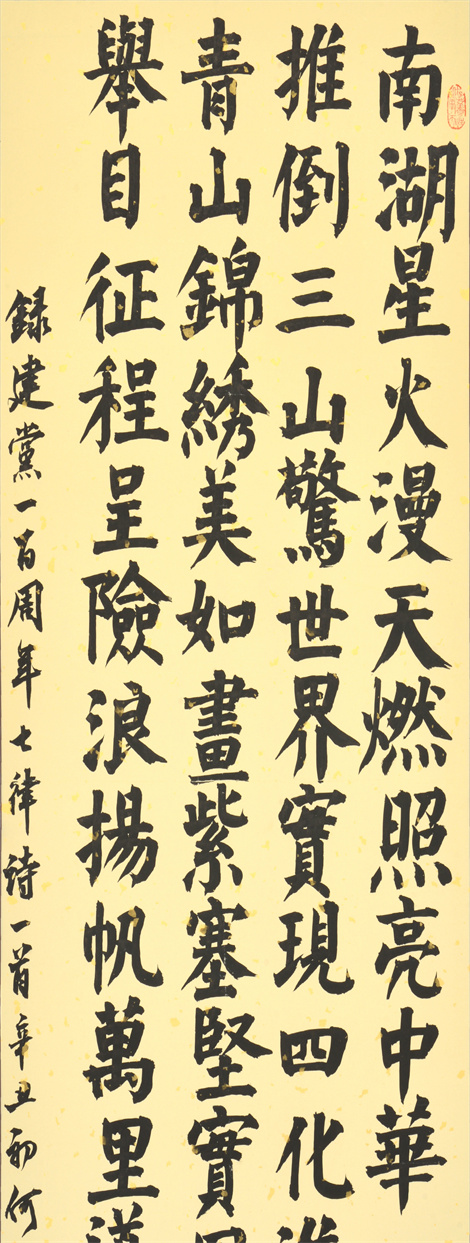 南湖星火漫天燃照亮中華
推倒三山驚世界實現四化
青山錦綉美如畫紫塞堅實
舉目征程呈險浪揚帆萬里
録建黨一百周年七律詩一首辛丑初何